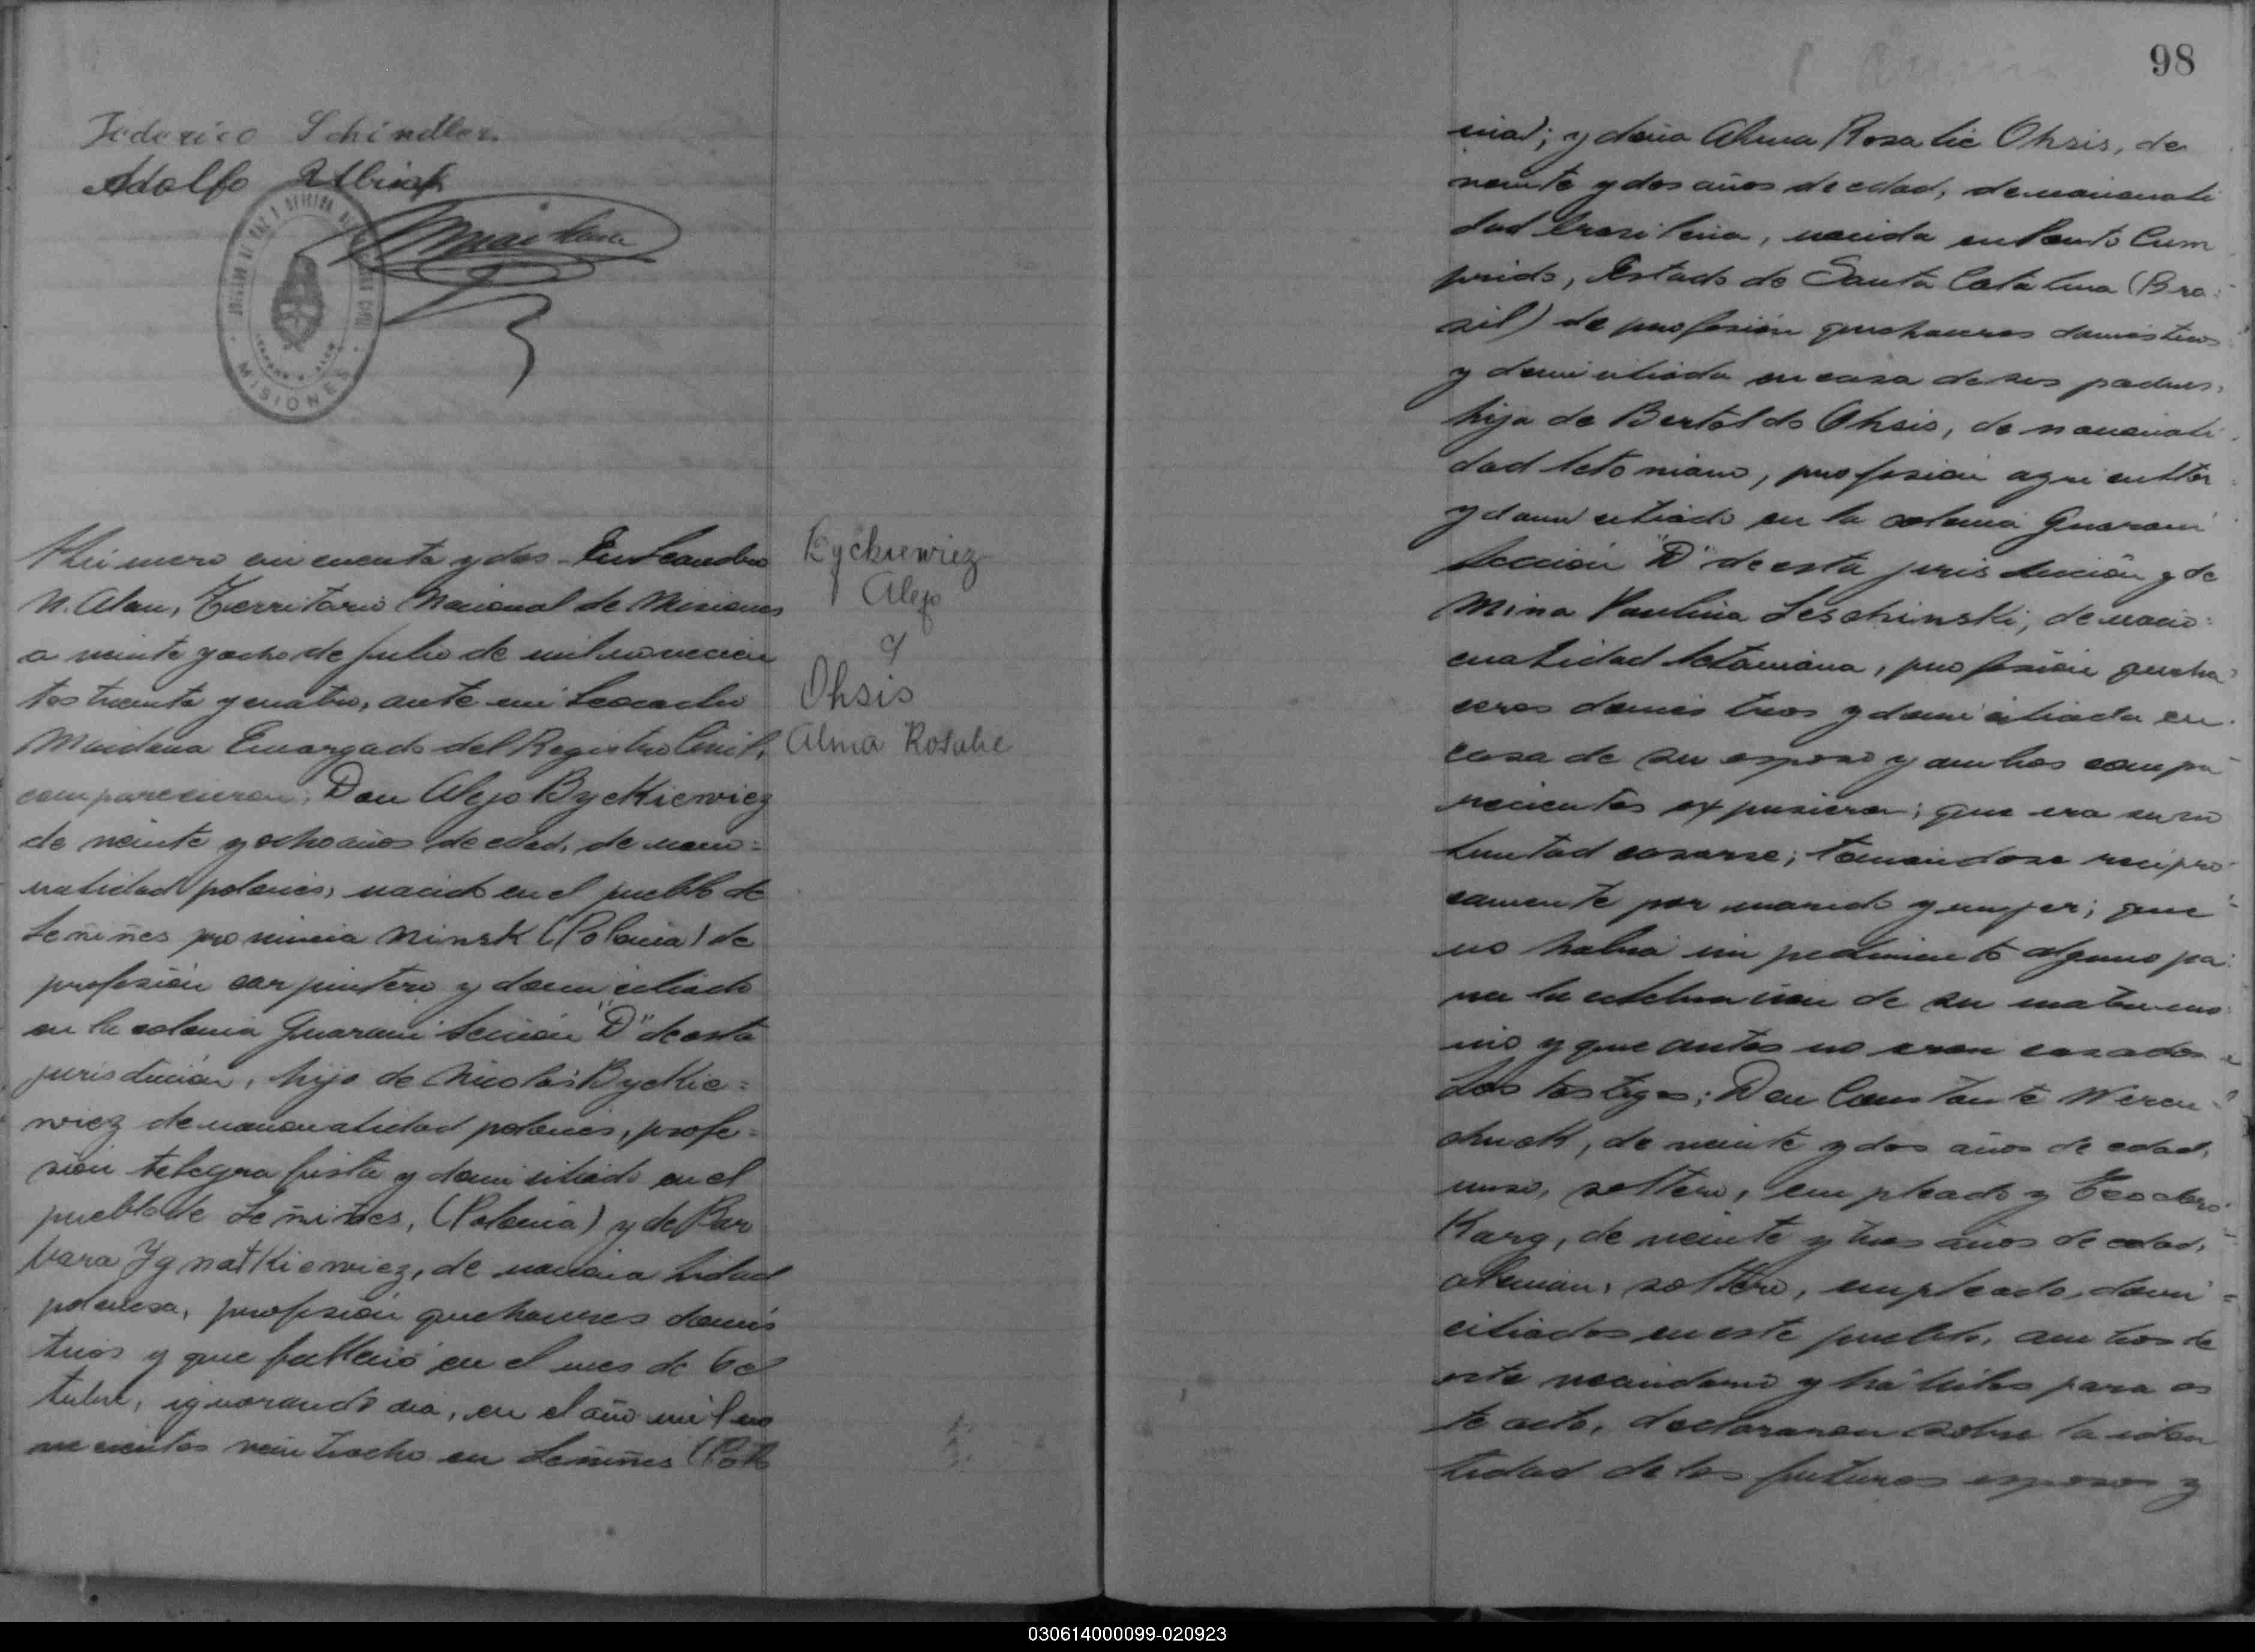 Federico Schindler.
Adolfo Ulbrich
JUZGADO DE PAZ Y OFICINA DEL REGISTRO CIVIL
LEANDRO N. ALEM
MISIONES
Número cincuenta y dos - En Leandro
N. Alem, Territorio Nacional de Misiones
a veinte y ocho de Julio de mil novecien
tos treinta y cuatro, ante mi Leocadio
Maidana Encargado del Registro Civil,
comparecieron; Don Alejo Byckiewiez
de veinte y ocho años de edad, de nacio=
nalidad polonés, nacido en el pueblo de
Leñiñes provincia Minsk (Polonia) de
profesión carpintero y domiciliado
en la colonia Guaraní Sección "D" de esta
jurisdicción, hijo de Nicolás Byckie=
wiez de nacionalidad polonés, profe=
sión telegrafista y domiciliado en el
pueblo de Leñiñes, (Polonia) y de Bar
bara Ygnatkiewiez, de nacionalidad
polonesa, profesión quehaceres domés
ticos y que falleció en el mes de Oc
tubre, ignorando dia, en el año mil no
vecientos veintiocho en Leñiñes (Polo
Byckiewiez
Alejo
y
Ohsis
Alma Rosalie
98
nia); y doña Alma Rosalie Ohsis, de
veinte y dos años de edad, de nacionali
dad brasileña, nacida en Ponto Cum
prido, Estado de Santa Catalina (Bra=
sil) de profesión quehaceres domésticos
y domiciliada en casa de sus padres,
hija de Bertoldo Ohsis, de nacionali
dad letoniano, profesión agricultor
y domiciliado en la colonia Guaraní
Sección "D" de esta jurisdicción y de
Mina Paulina Leschinski, de nacio=
nalidad letoniana, profesión queha=
ceres domésticos y domiciliada en
casa de su esposo y ambos compa
recientes expusieron; que era su vo
luntad casarse; tomándose recipro
camente por marido y mujer; que
no había impedimento alguno pa=
ra la celebración de su matrimo
nio y que antes no eran casados
Los testigos; Don Constante Weren
chuck, de veinte y dos años de edad,
ruso, soltero, empleado y Teodoro
Karg, de veinte y tres años de edad,
alemán, soltero, empleado, domi=
ciliados en este pueblo, ambos de
este vecindario y hábiles para es
te acto, declararon sobre la iden
tidad de los futuros esposos y
030614000099-020923